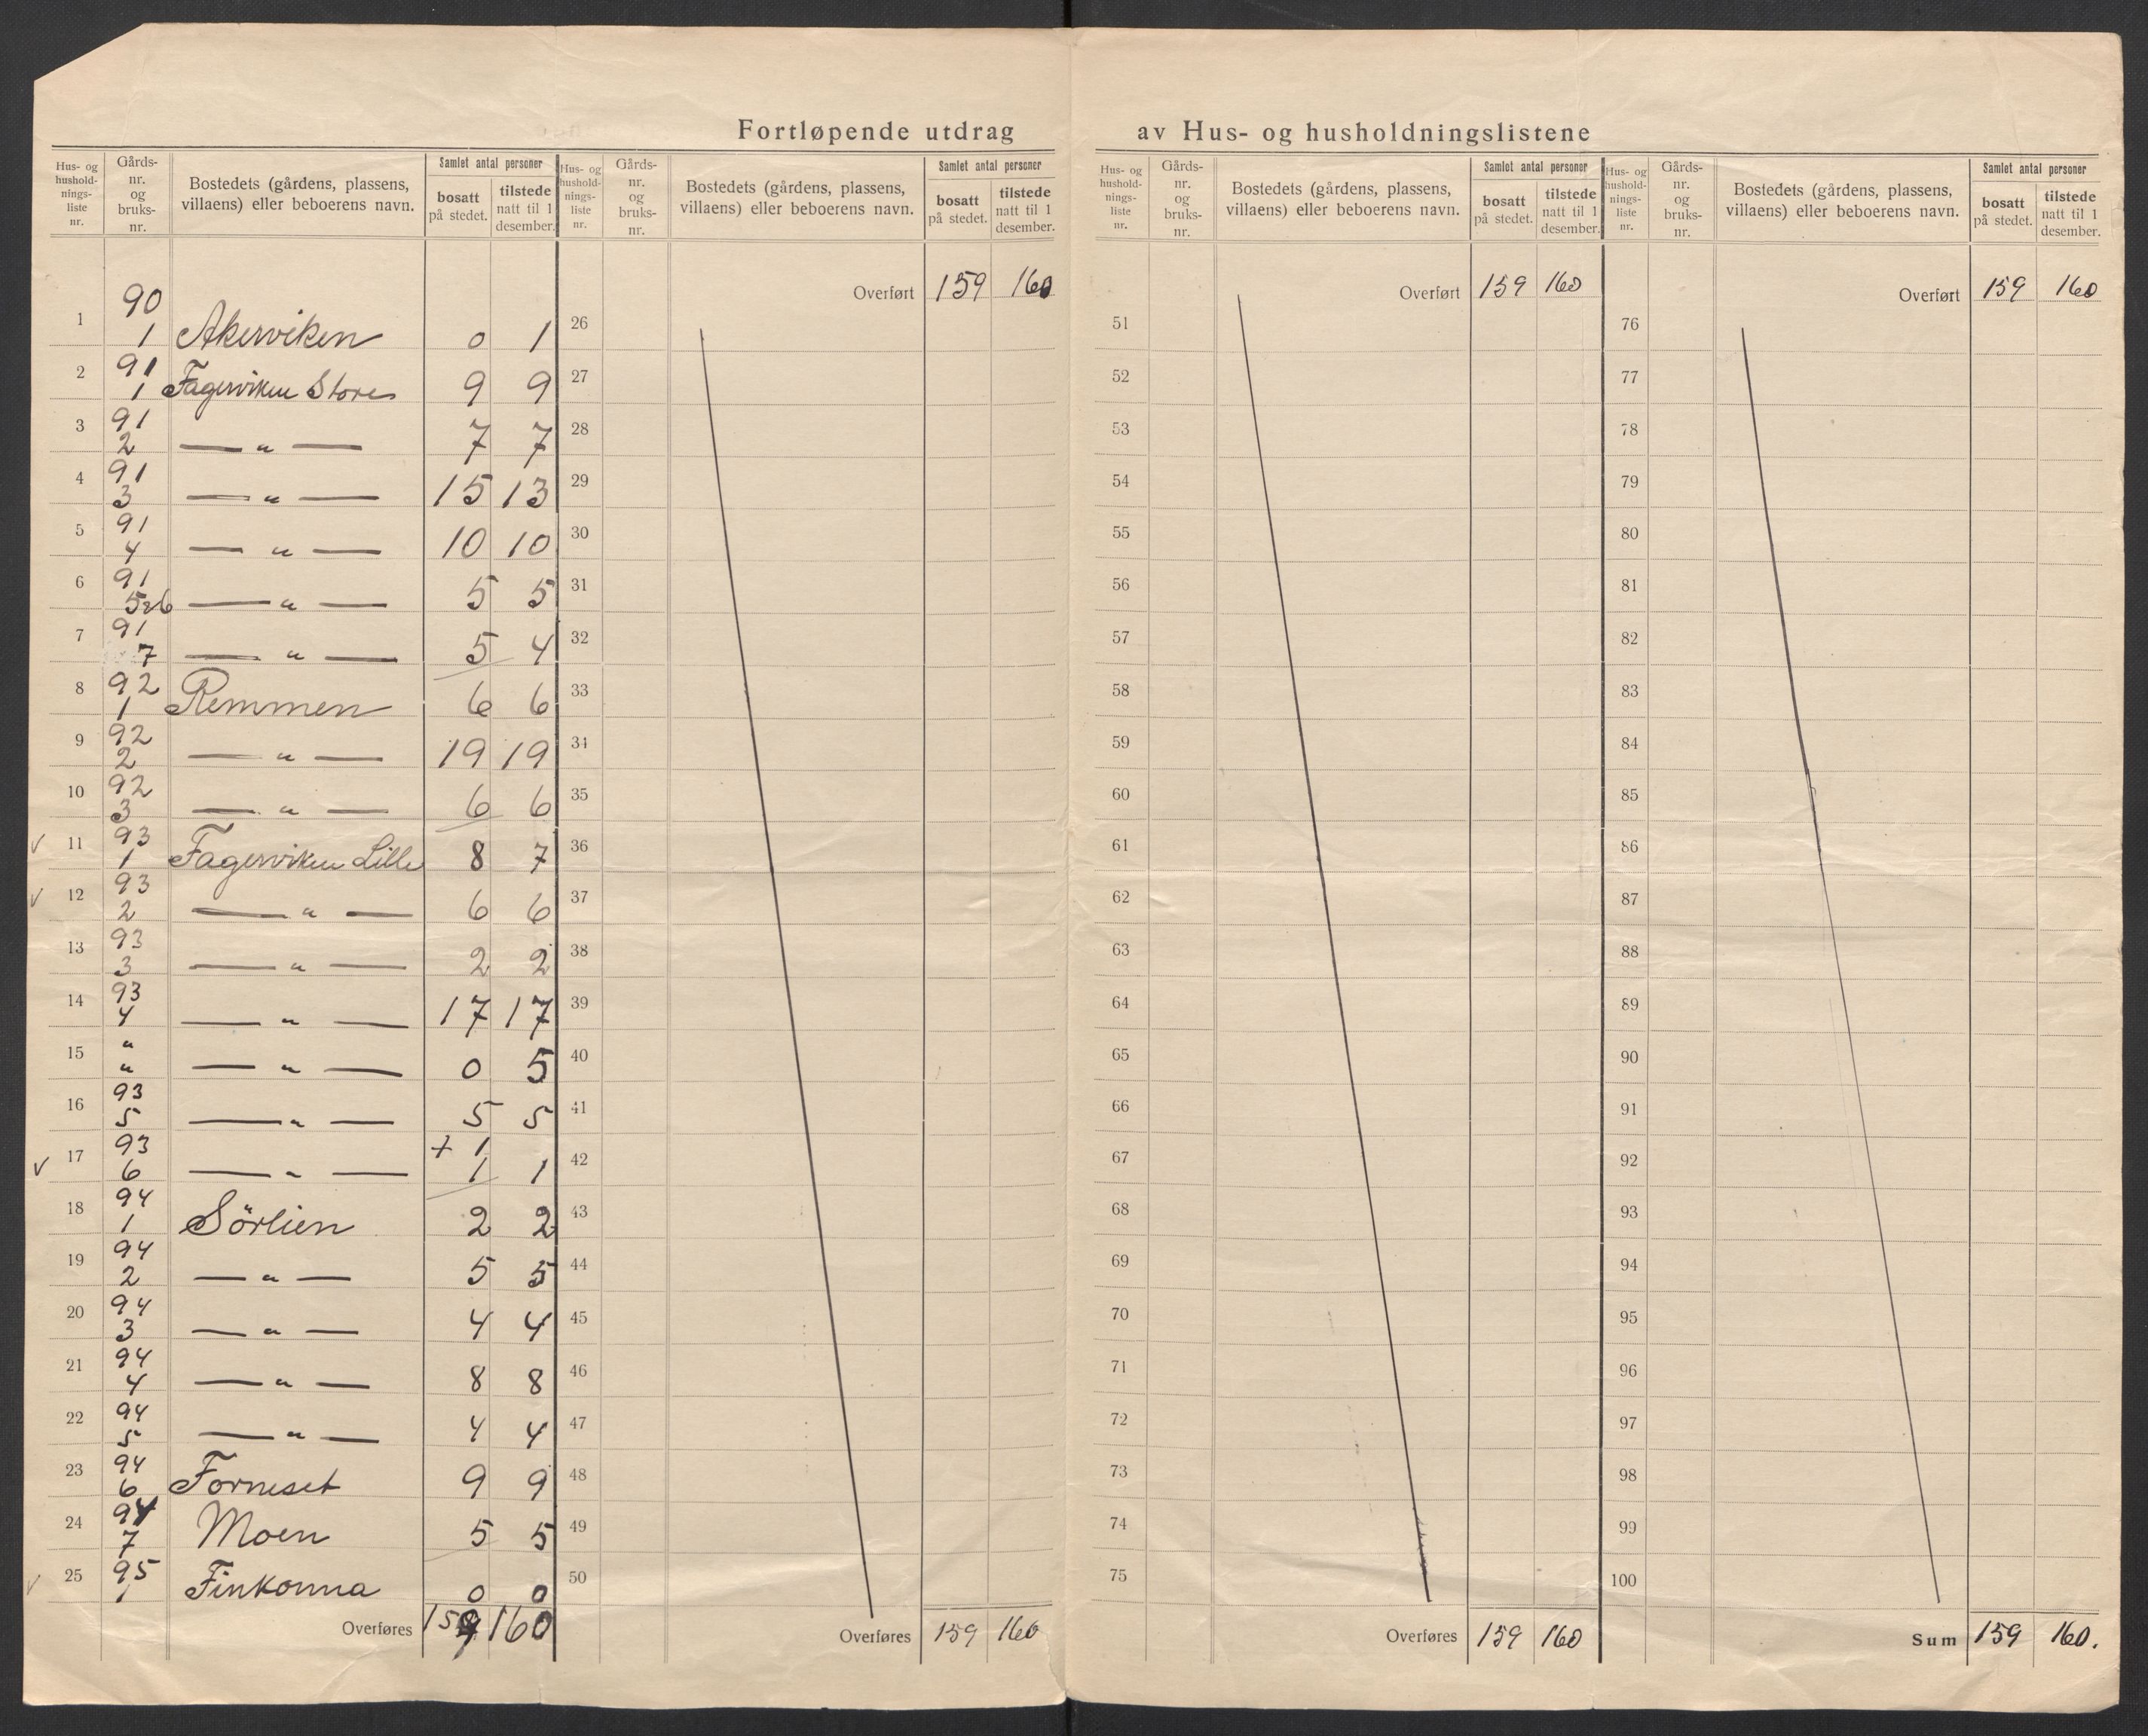 Fortløpende utdrag av Hus- og husholdningslistene
Hus- og hushold-nings-liste nr. | Gårds-nr. og bruks-nr. | Bostedets (gårdens, plassens, villaens) eller beboerens navn. | Samlet antal personer | bosatt på stedet. | tilstede natt til 1 desember.
1 90 1 Akerviken 0 1
2 91 1 Fagerviken Store 9 9
3 91 2 — " — 7 7
4 91 3 — " — 15 13
5 91 4 — " — 10 10
6 91 5 2 6 — " — 5 5
7 91 7 — " — 5 4
8 92 1 Remmen 6 6
9 92 2 — " — 19 19
10 92 3 — " — 6 6
✓ 11 93 1 Fagerviken Lille 8 7
✓ 12 93 2 — " — 6 6
13 93 3 — " — 2 2
14 93 4 — " — 17 17
15 " " — " — 0 5
16 93 5 — " — 5 5
✓ 17 93 6 — " — + 1 1 1
18 94 1 Sörlien 2 2
19 94 2 — " — 5 5
20 94 3 — " — 4 4
21 94 4 — " — 8 8
22 94 5 — " — 4 4
23 94 6 Forneset 9 9
24 94 7 Moen 5 5
✓ 25 95 1 Finkonna 0 0
Overføres 159 160
Hus- og hushold-nings-liste nr. | Gårds-nr. og bruks-nr. | Bostedets (gårdens, plassens, villaens) eller beboerens navn. | Samlet antal personer | bosatt på stedet. | tilstede natt til 1 desember.
Overført 159 160
26
27
28
29
30
31
32
33
34
35
36
37
38
39
40
41
42
43
44
45
46
47
48
49
50
Overføres 159 160
Hus- og hushold-nings-liste nr. | Gårds-nr. og bruks-nr. | Bostedets (gårdens, plassens, villaens) eller beboerens navn. | Samlet antal personer | bosatt på stedet. | tilstede natt til 1 desember.
Overført 159 160
51
52
53
54
55
56
57
58
59
60
61
62
63
64
65
66
67
68
69
70
71
72
73
74
75
Overføres 159 160
Hus- og hushold-nings-liste nr. | Gårds-nr. og bruks-nr. | Bostedets (gårdens, plassens, villaens) eller beboerens navn. | Samlet antal personer | bosatt på stedet. | tilstede natt til 1 desember.
Overført 159 160
76
77
78
79
80
81
82
83
84
85
86
87
88
89
90
91
92
93
94
95
96
97
98
99
100
Sum 159 160.